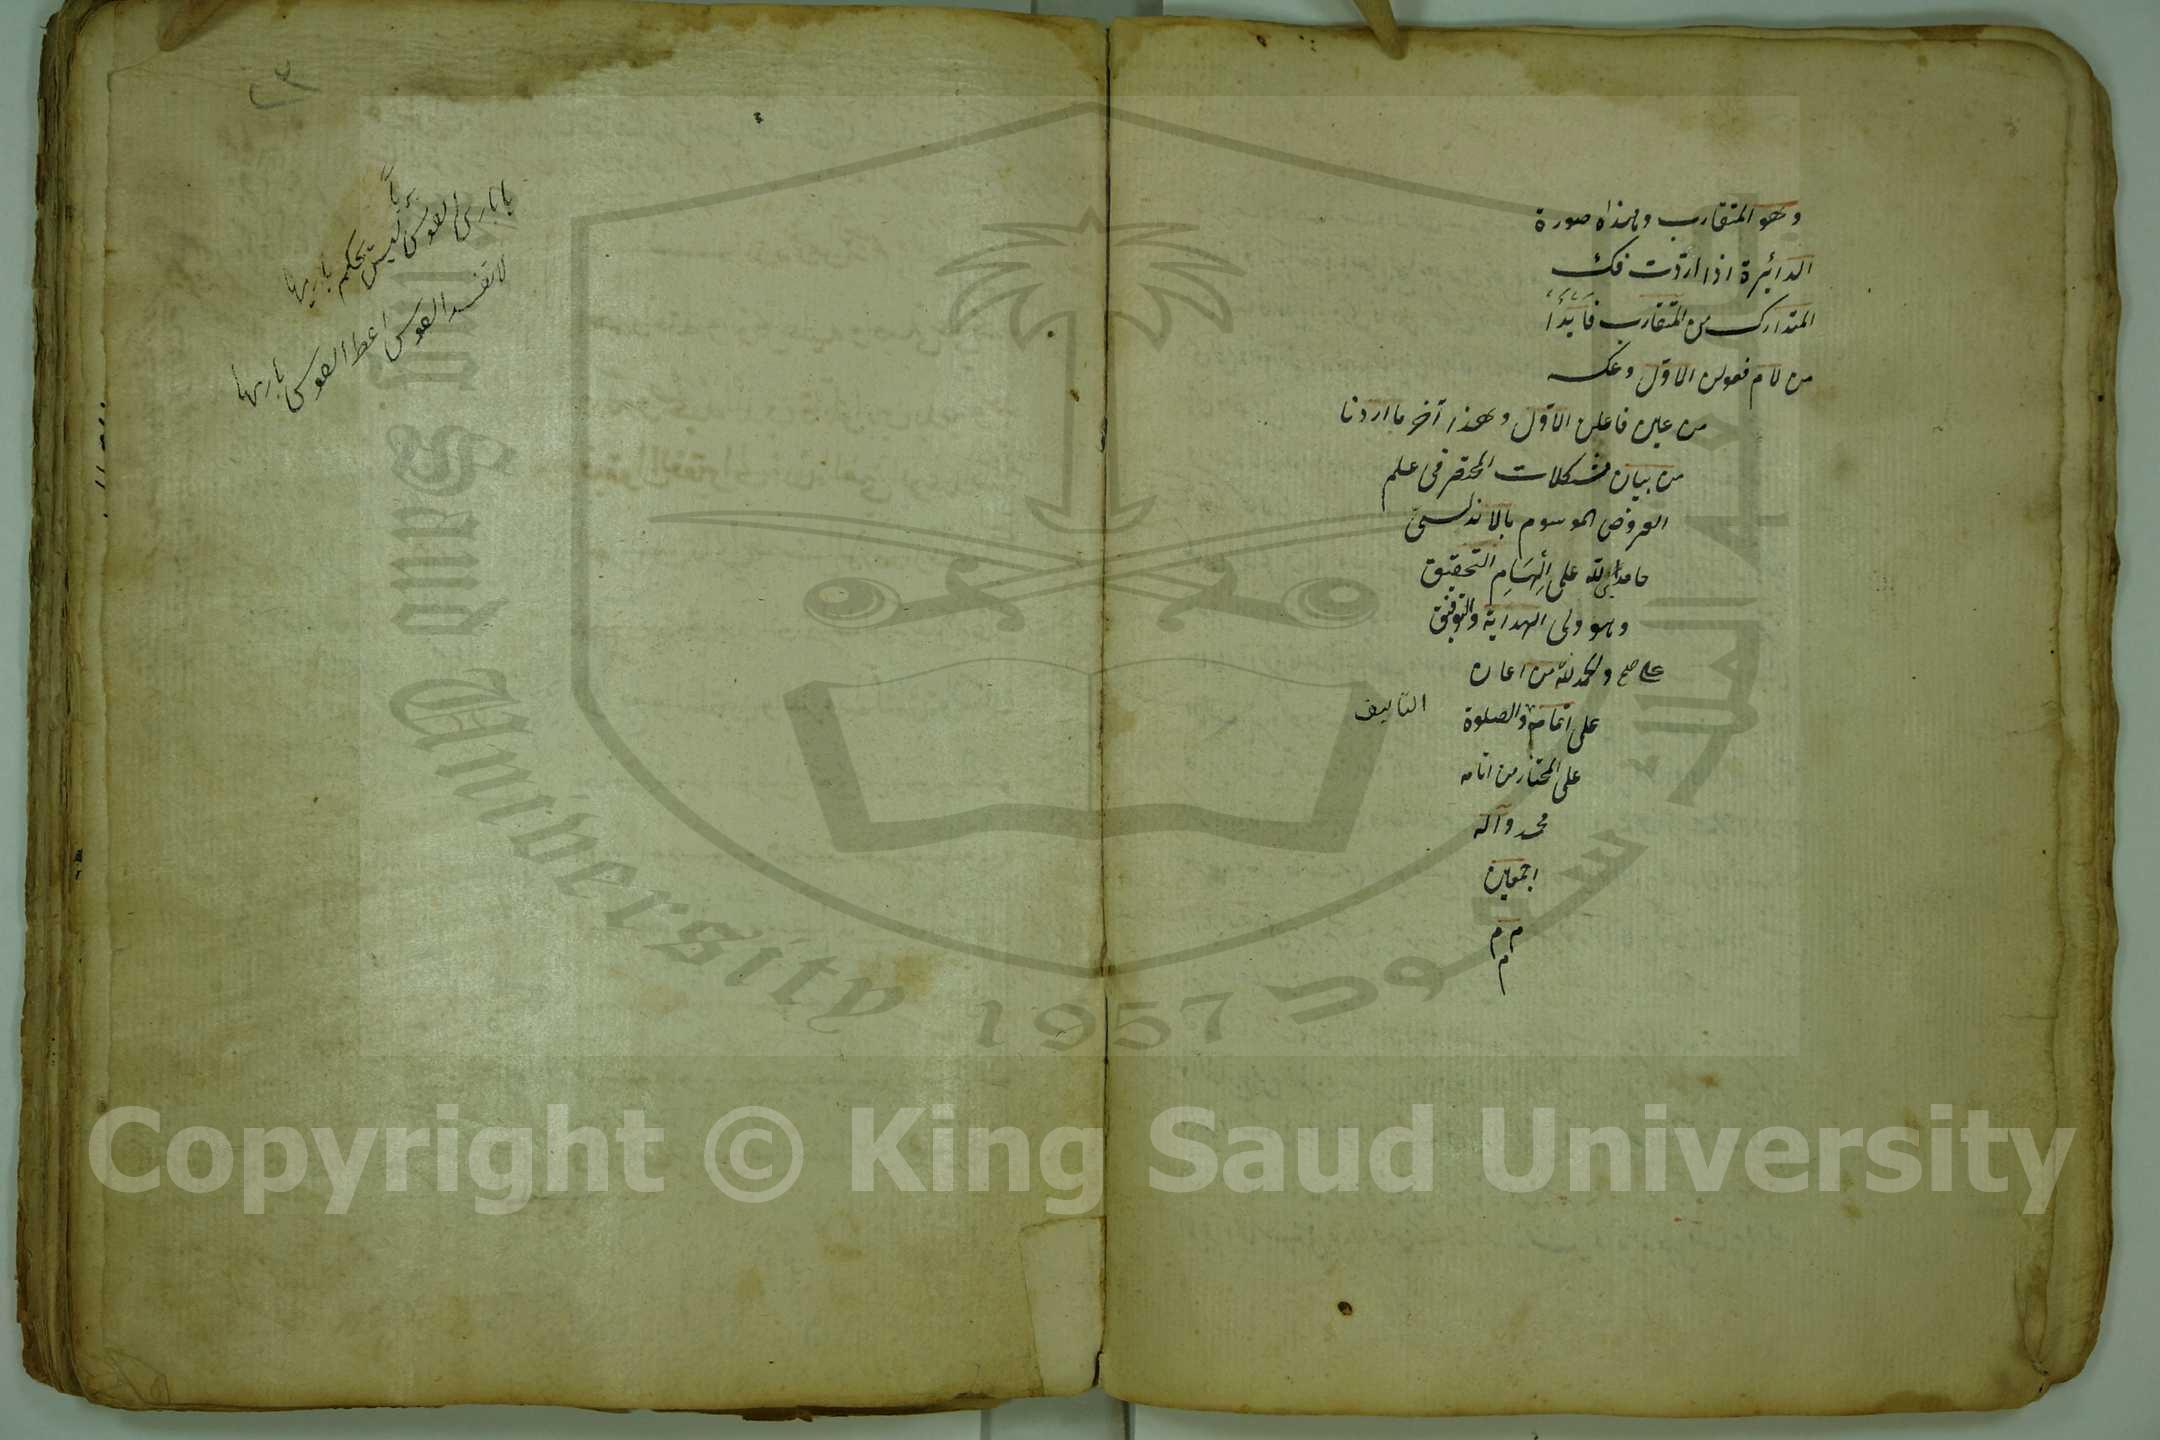 وهو المتقارب وهذه صورة
الدائرة اذا اردت فك
المتدارك من المتقارب فابدأ
من لام فعولن الاول وعكسه
من عين فاعلن الاول وهذا آخر ما اردنا
من بيان مشكلات المختصر فى علم
العروض الموسوم بالاندلسى
حامدا لله على إلهام التحقيق
وهو ولى الهداية والتوفيق
والحمد لله من اعان
على اتمام والصلوة
التأليف
على المختار من انامه
محمد وآله
اجمعين
م م
م
يا بارى القوس بريا ليس تحكم باريها
لا تفسد القوس اعط القوس باريها
Copyright © King Saud University
King Saud University 1957